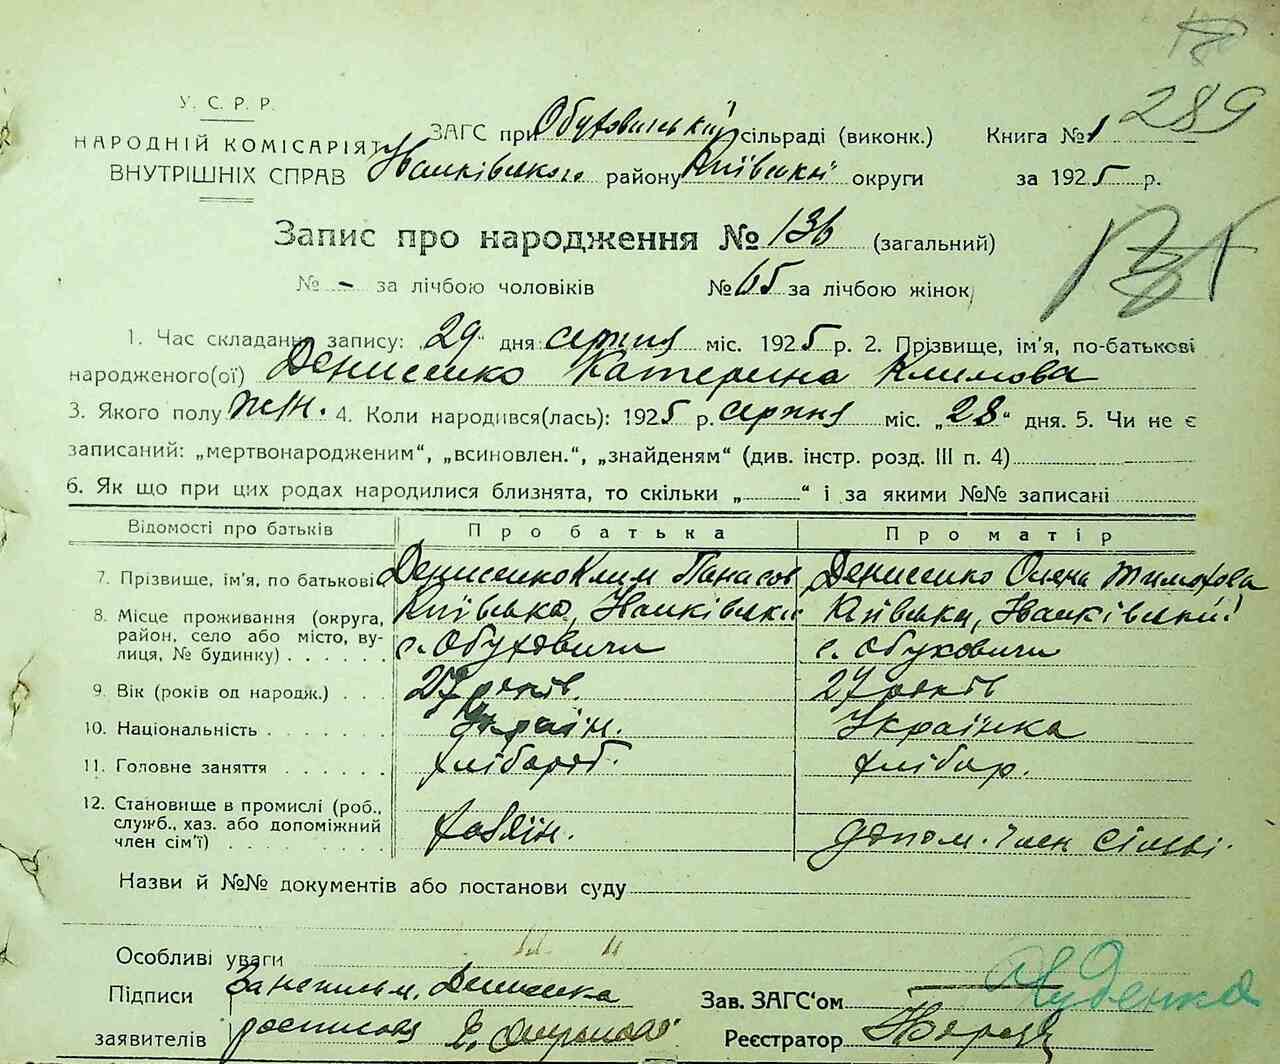 289
У. С. Р. Р.
НАРОДНІЙ КОМІСАРІЯТ
ВНУТРІШНІХ СПРАВ
ЗАГС при Обуховицький сільраді (виконк.) Книга № 1
Іванківського району Київської округи за 1925 р.
Запис про народження № 136 (загальний)
№ - за лічбою чоловіків № 65 за лічбою жінок
1. Час складання запису: „29" дня серпня міс. 1925 р. 2. Прізвище, ім'я, по-батькові
народженого(ої) Денисенко Катерина Климова
3. Якого полу жін. 4. Коли народився(лась): 1925 р. серпня міс. „28" дня. 5. Чи не є
записаний: „мертвонародженим“, „всиновлен.“, „знайденям“ (див. інстр. розд. III п. 4)
6. Як що при цих родах народилися близнята, то скільки „ “ і за якими №№ записані
Відомості про батьків Про батька Про матір
7. Прізвище, ім'я, по батькові Денисенко Клим Панасов Денисенко Олена Тимохова
8. Місце проживання (округа, район, село або місто, вулиця, № будинку) Київська, Іванківськ Київська, Іванківський
с. Обуховичи с. Обуховичи
9. Вік (років од народж.) 27 років 27 років
10. Національність Україн. Українка
11. Головне заняття хлібороб. хлібор.
12. Становище в промислі (роб., служб., хаз. або допоміжний член сім'ї) хазяїн. допом. член сімьі.
Назви й №№ документів або постанови суду
Особливі уваги
Підписи За неписьм. Денисенка
заявителів росписався
Зав. ЗАГС‘ом
Реєстратор